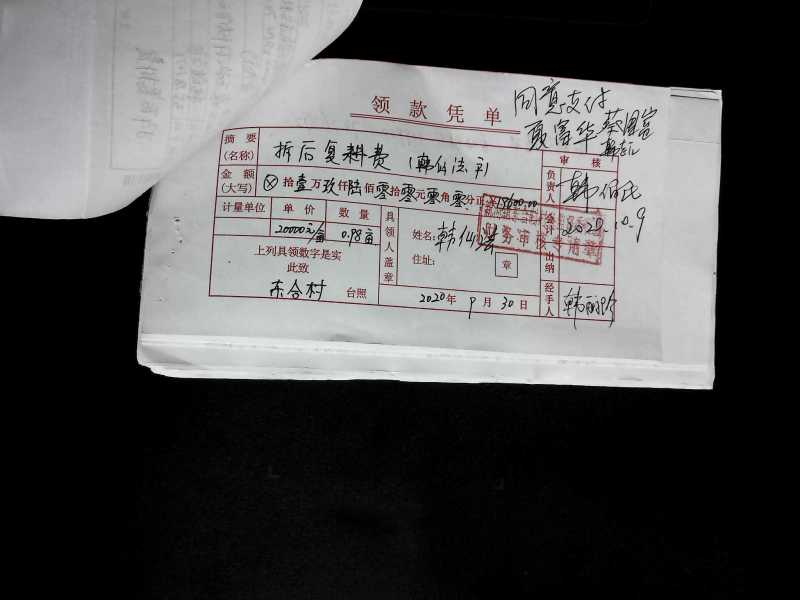 领款凭单
同意支付
聂富华 蔡国富
摘要
(名称)
拆后复耕费 (韩仙法户)
审核
金额
(大写)
⊗拾壹万玖仟陆佰零拾零元零角零分正
负责人
韩伯民
计量单位 单价 数量
20000元/亩 0.98亩
具领人盖章
姓名: 韩仙法
住址:
章
财务审核专用章
会计
2020.10.9
出纳
上列具领数字是实
此致
东合村 台照
2020年 9月30日
经手人